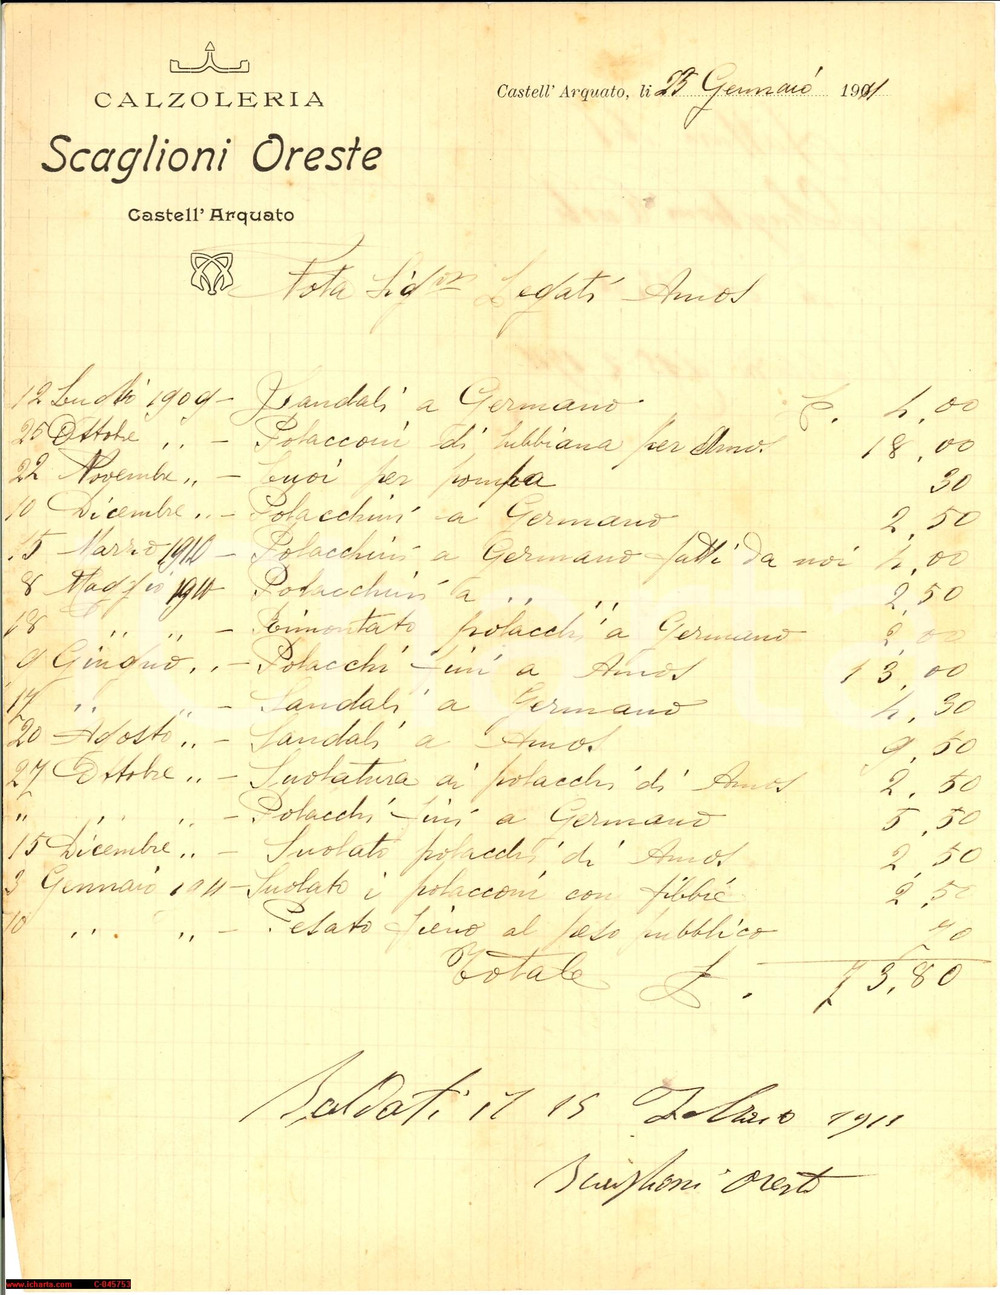 CALZOLERIA
Scaglioni Oreste
Castell' Arquato
Castell' Arquato, li 25 Gennaio 1911
Nota Sigor Legati Amos
12 Luglio 1909 - Sandali a Germano £. 4,00
25 Ottobre " - Polacconi di bubbiana per Amos 18,00
22 Novembre " - Cuoi per pompa 30
10 Dicembre " - Polacchini a Germano 2,50
15 Marzo 1910 - Polacchini a Germano fatti da noi 4,00
8 Maggio 1910 - Polacchini a " " 2,50
18 " " - Rimontato polacchi a Germano 2,00
9 Giugno " - Polacchi fini a Amos 13,00
17 " " - Sandali a Germano 4,30
20 Agosto " - Sandali a Amos 9,50
27 Ottobre " - Suolatura ai polacchi di Amos 2,50
" " " - Polacchi fini a Germano 5,50
15 Dicembre " - Suolato polacchi di Amos 2,50
3 Gennaio 1911 - Suolato i polacconi con fibbie 2,50
10 " " - Pesato fieno al peso pubblico 70
Totale £. 73,80
Saldati il 15 Febbraio 1911
Scaglioni Oreste
icharta
www.icharta.com C-045753